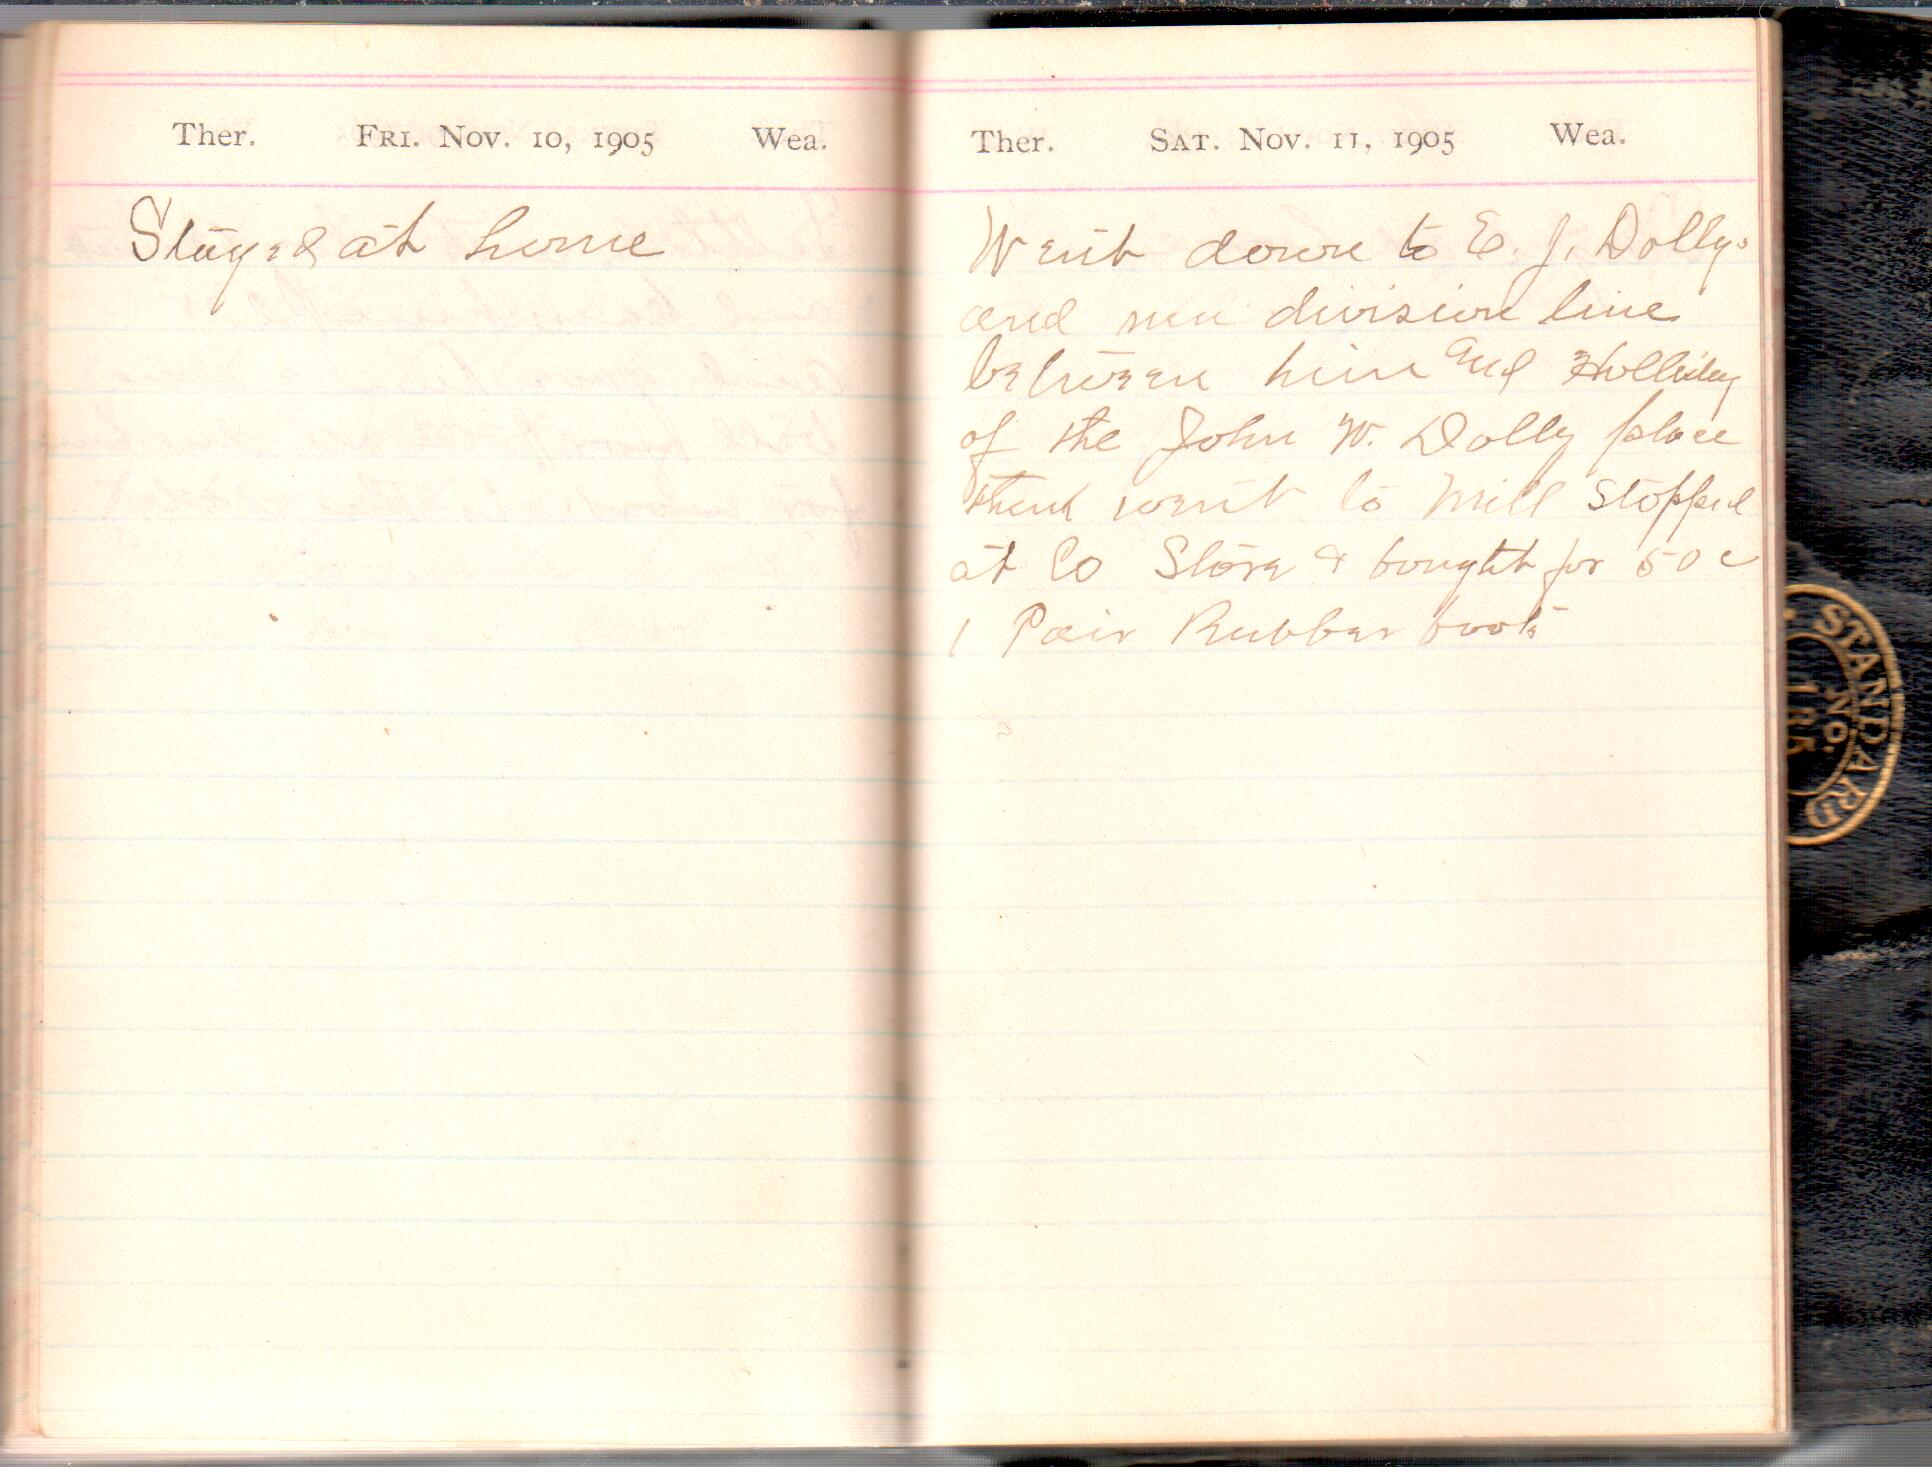 Ther. Fri. Nov. 10, 1905 Wea.
Stayed at home
Ther. Sat. Nov. 11, 1905 Wea.
Went down to E. J. Dollys
and run division line
between him and
of the John W. Dolly place
went to Mill stopped
at Co Store & bought for 50 c
1 Pair Rubber boots
STANDARD
No.
185